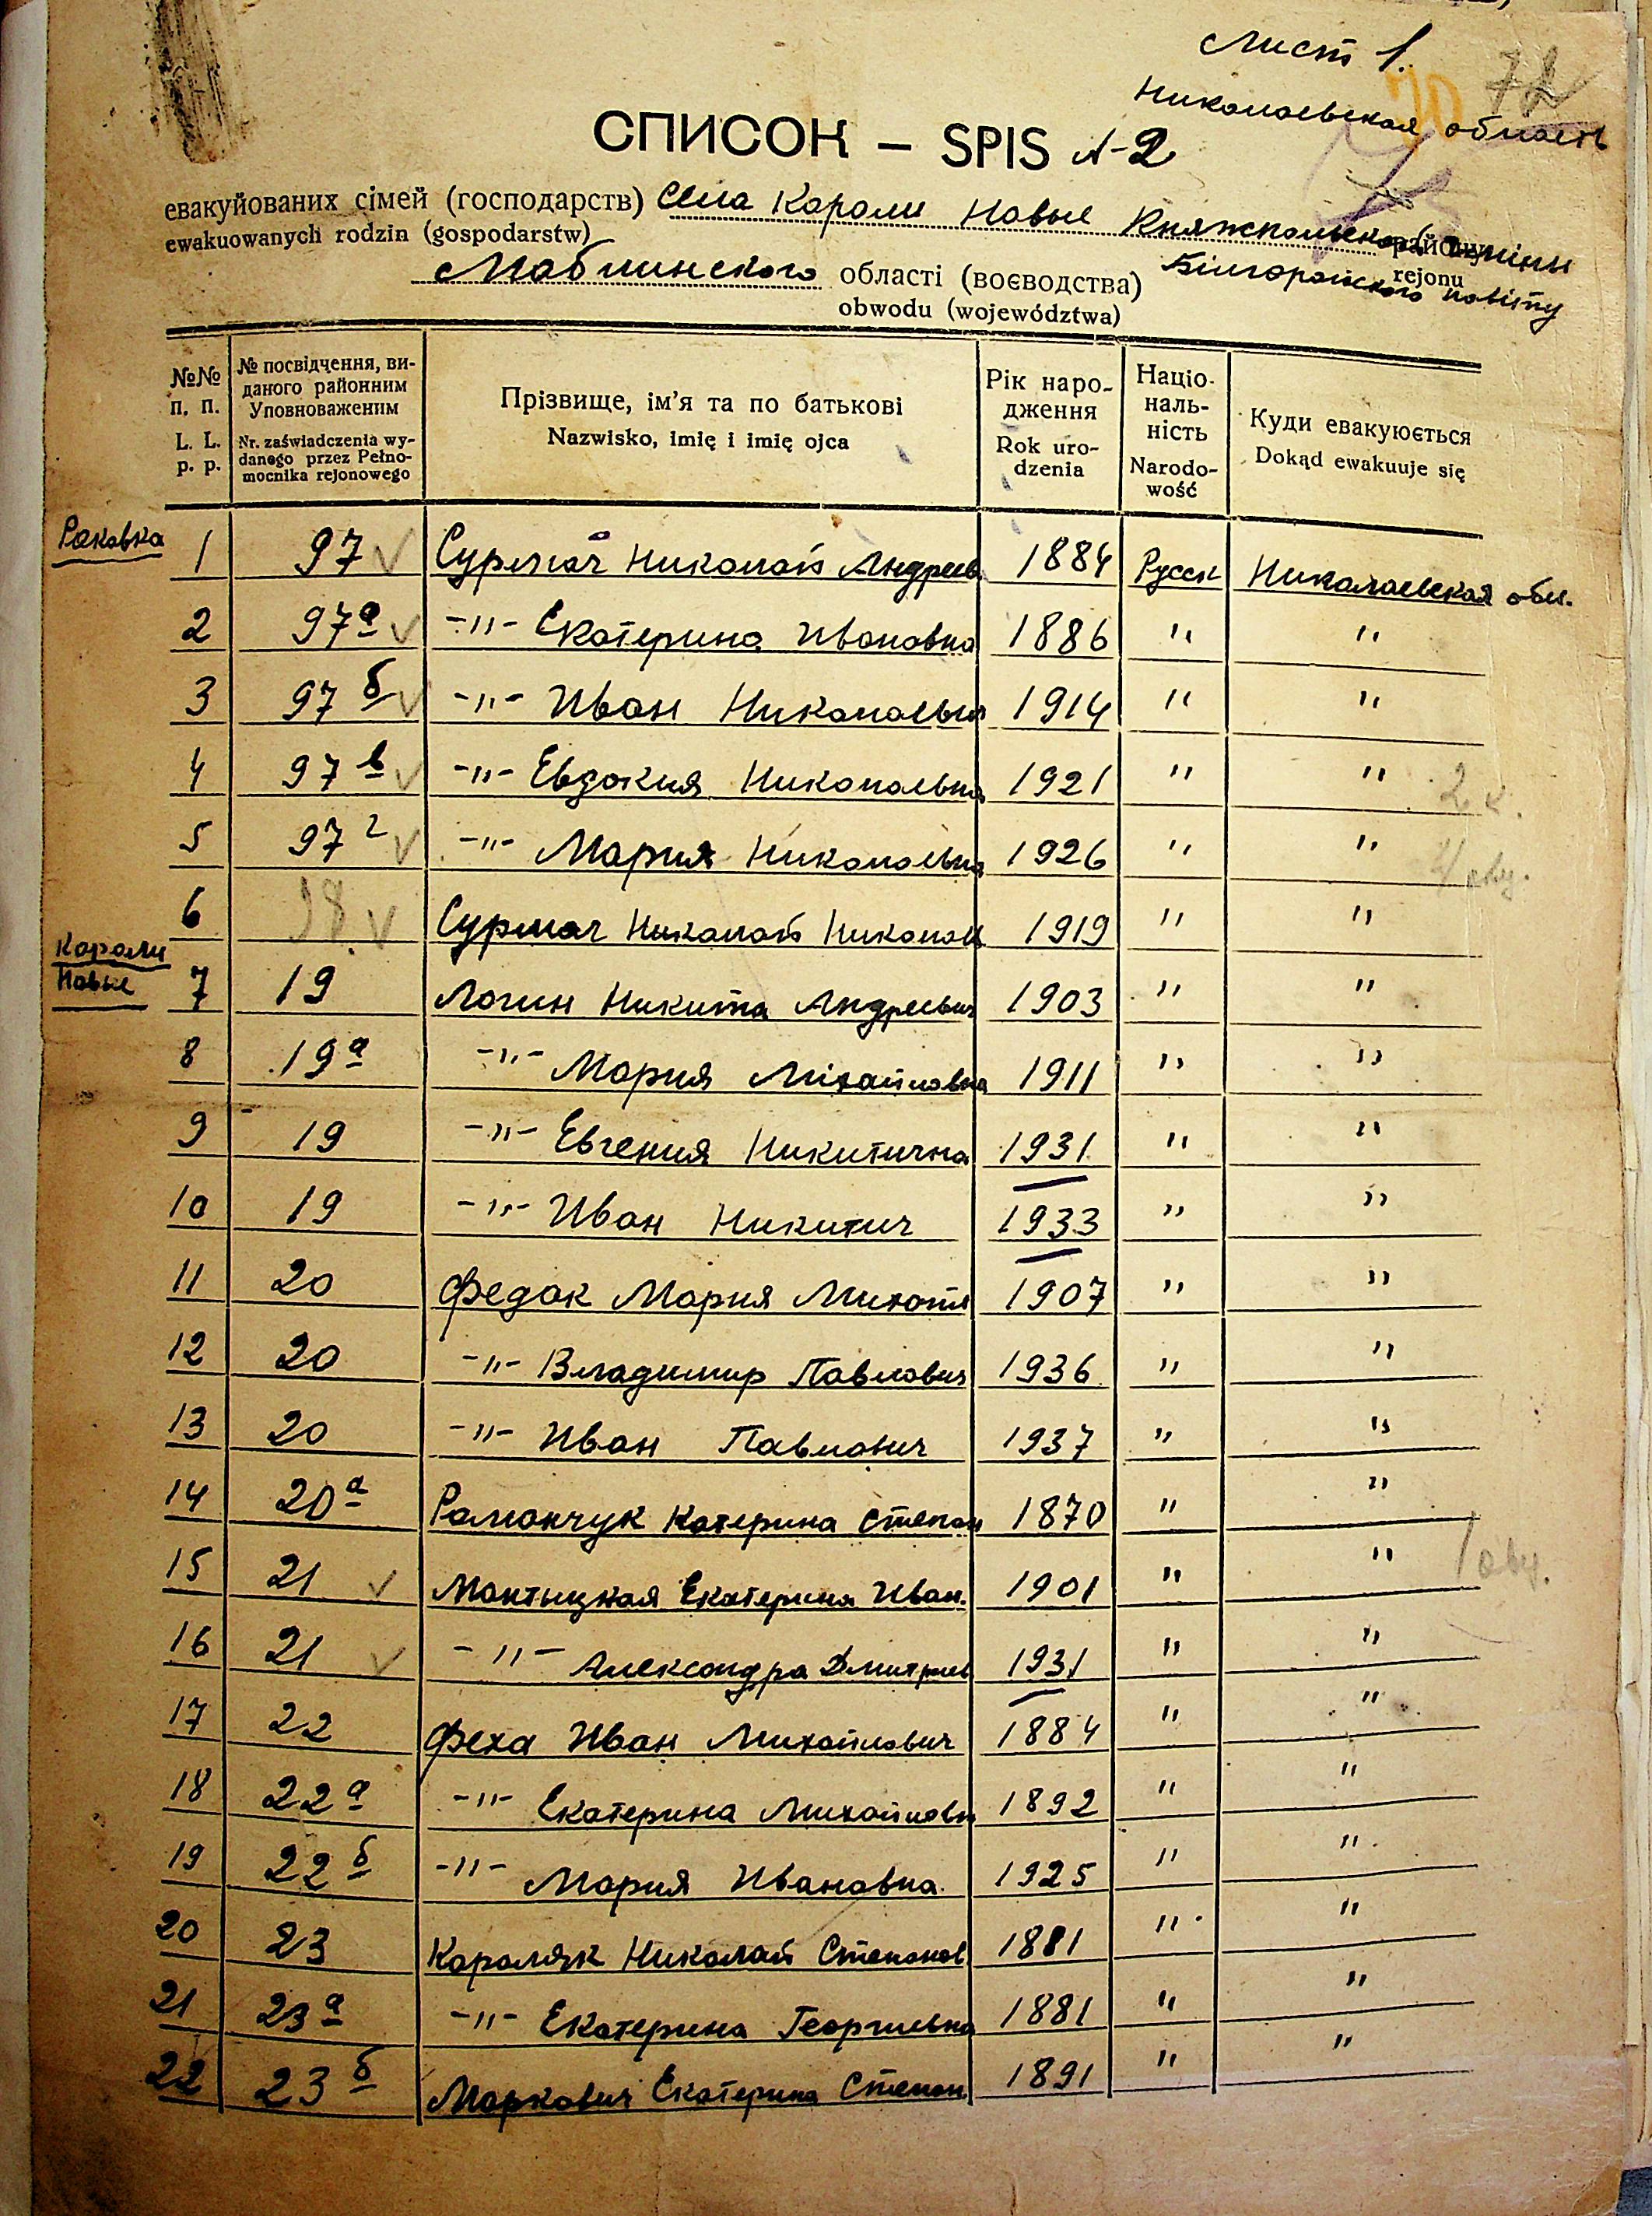 Лист 1.
70 72
Николаевская область
СПИСОК – SPIS № 2
евакуйованих сімей (господарств) Села Кароли Новые Княжпольской гмины району
ewakuowanych rodzin (gospodarstw)
Люблинского області (воєводства) Білгорайского повіту rejonu
obwodu (województwa)
№№ п. п. L. L. p. p.
№ посвідчення, виданого районним Уповноваженим Nr. zaświadczenia wydanego przez Pełnomocnika rejonowego
Прізвище, ім'я та по батькові Nazwisko, imię i imię ojca
Рік народження Rok urodzenia
Національність Narodowość
Куди евакуюється Dokąd ewakuuje się
Раковка 1 97 Сурмач Николай Андреев 1884 Русск Николаевская обл.
2 97а -"- Екатерина Ивановна 1886 " "
3 97б -"- Иван Николаевич 1914 " "
4 97в -"- Евдокия Николаевна 1921 " "
5 97г -"- Мария Николаевна 1926 " "
6 98 Сурмач Николай Никола 1919 " "
Кароли Новые 7 19 Логин Никита Андреевич 1903 " "
8 19а -"- Мария Міхайловна 1911 " "
9 19 -"- Евгения Никитична 1931 " "
10 19 -"- Иван Никитич 1933 " "
11 20 Федак Мария Михайл 1907 " "
12 20 -"- Владимир Павлович 1936 " "
13 20 -"- Иван Павлович 1937 " "
14 20а Романчук Катерина Степан 1870 " "
15 21 Мантыцкая Екатерина Иван. 1901 " "
16 21 -"- Александра Дмитриев 1931 " "
17 22 Феха Иван Михайлович 1884 " "
18 22а -"- Екатерина Михайловн 1892 " "
19 22б -"- Мария Ивановна 1925 " "
20 23 Короляк Николай Степанов 1881 " "
21 23а -"- Екатерина Георгиевна 1881 " "
22 23б Маркович Екатерина Степан 1891 " "